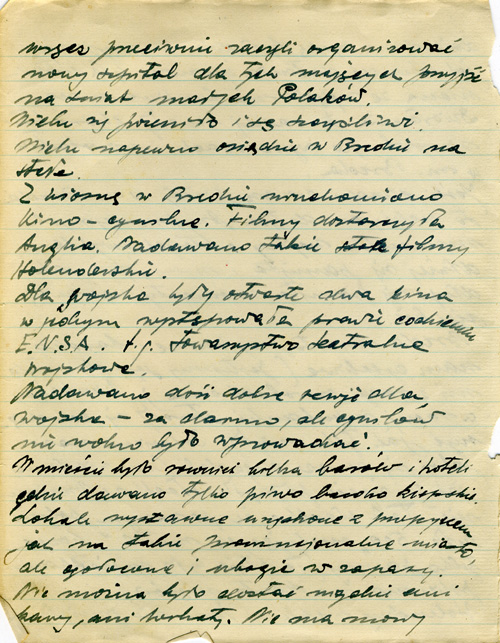 wręcz przeciwnie zaczęli organizować
nowy szpital dla tych mających przyjść
na świat małych Polaków.
Wielu się pożeniło i są szczęśliwi.
Wielu napewno osiądzie w Bredzie na
stałe.
Z wiosną w Bredzie uruchomiono
Kino – cywilne. Filmy dostarczyła
Anglia. Nadawano także stare filmy
Holenderskie.
Dla wojska były otwarte dwa kina
w jednym występowała prawie codziennie
E.N.S.A. t.j. towarzystwo teatralne
wojskowe.
Nadawano dość dobre rewje dla
wojska – za darmo, ale cywilów
nie wolno było wprowadzać.
W mieście było również kilka barów i hoteli
gdzie dawano tylko piwo bardzo kiepskie.
Lokale wystawne urządzone z przepychem
jak na takie prowincjonalne miasto,
ale ogołocone i ubogie w zapasy.
Nie można było dostać nigdzie ani
kawy, ani herbaty. Nie ma mowy